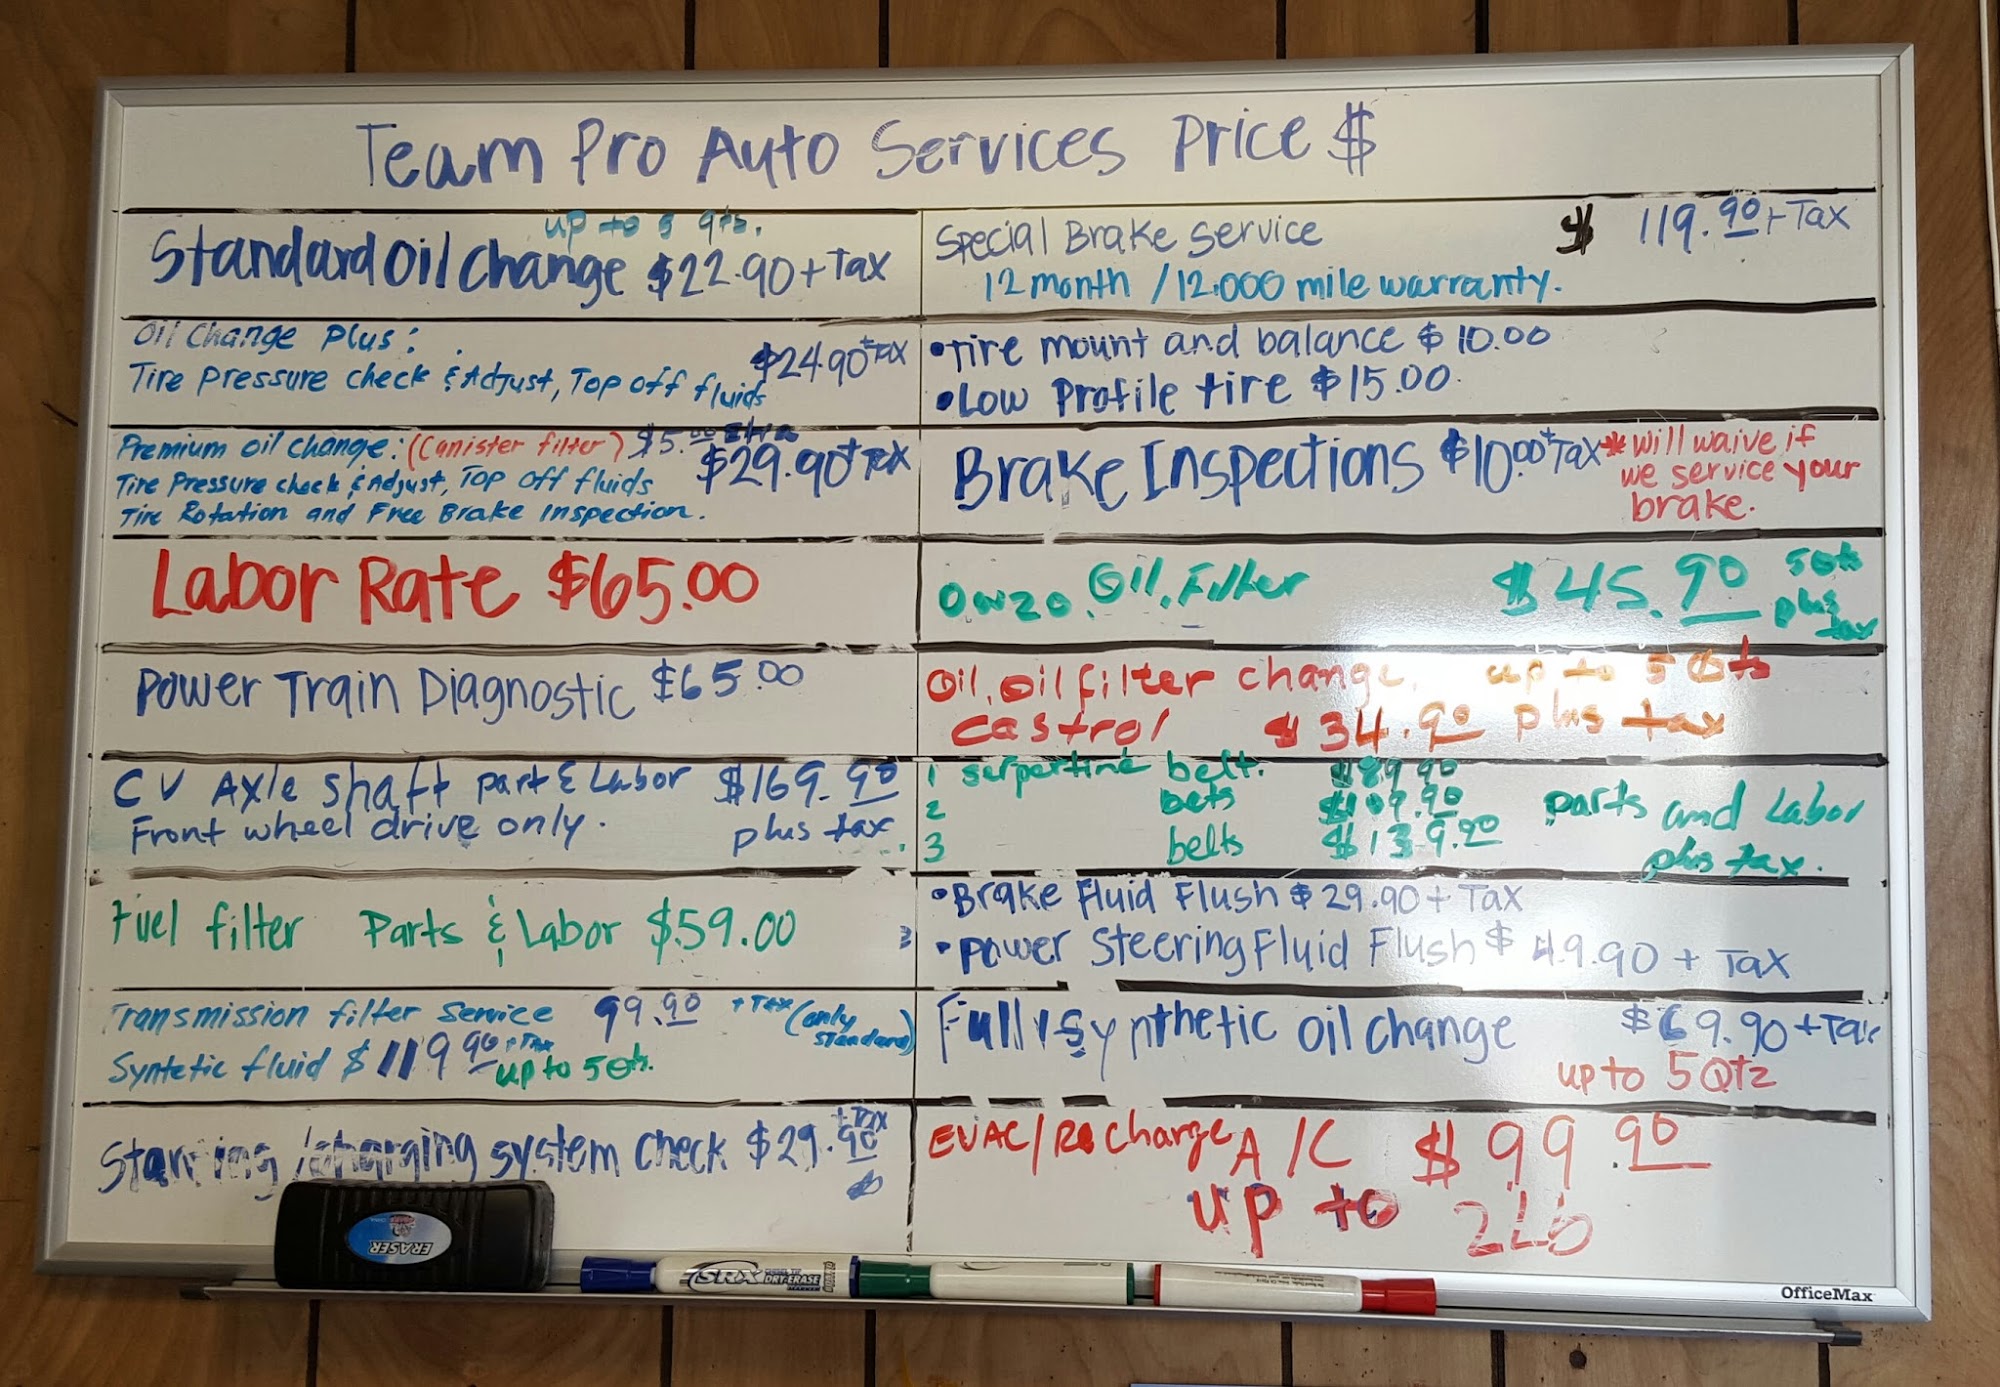 Team Pro Auto Services Price $
up to 5 qts.
Standard Oil Change $22.90 + Tax
Oil Change Plus:
$24.90 + Tax
Tire pressure check & Adjust, Top off fluids
Premium oil change: (Canister filter) $5.00 Extra
$29.90 + Tax
Tire Pressure check & Adjust, Top off fluids
Tire Rotation and Free Brake Inspection.
Labor Rate $65.00
Power Train Diagnostic $65.00
CV Axle shaft part & Labor $169.90
Front wheel drive only. plus tax.
Fuel filter Parts & Labor $59.00
Transmission filter service 99.90 + Tax (only standard)
Syntetic fluid $119.90 + Tax up to 5 Qts.
Starting / charging system check $29.90 + Tax
Special Brake Service $ 119.90 + Tax
12 month / 12.000 mile warranty.
• Tire mount and balance $ 10.00
• Low Profile tire $15.00
Brake Inspections $10.00 + Tax * will waive if
we service your
brake.
0w20. Oil. Filter $45.90 5Qts
plus
tax
Oil, oil filter change, up to 5 Qts
castrol $34.90 plus tax
1 serpertine belt. $89.90
2 bets $109.90 parts and Labor
3 belts $139.90 plus tax.
• Brake Fluid Flush $29.90 + Tax
• Power Steering Fluid Flush $49.90 + Tax
Fully Synthetic oil change $69.90 + Tax
up to 5 Qtz
EVAC/Recharge A/C $99.90
up to 2Lb
ERASER
SRX DRY-ERASE
OfficeMax